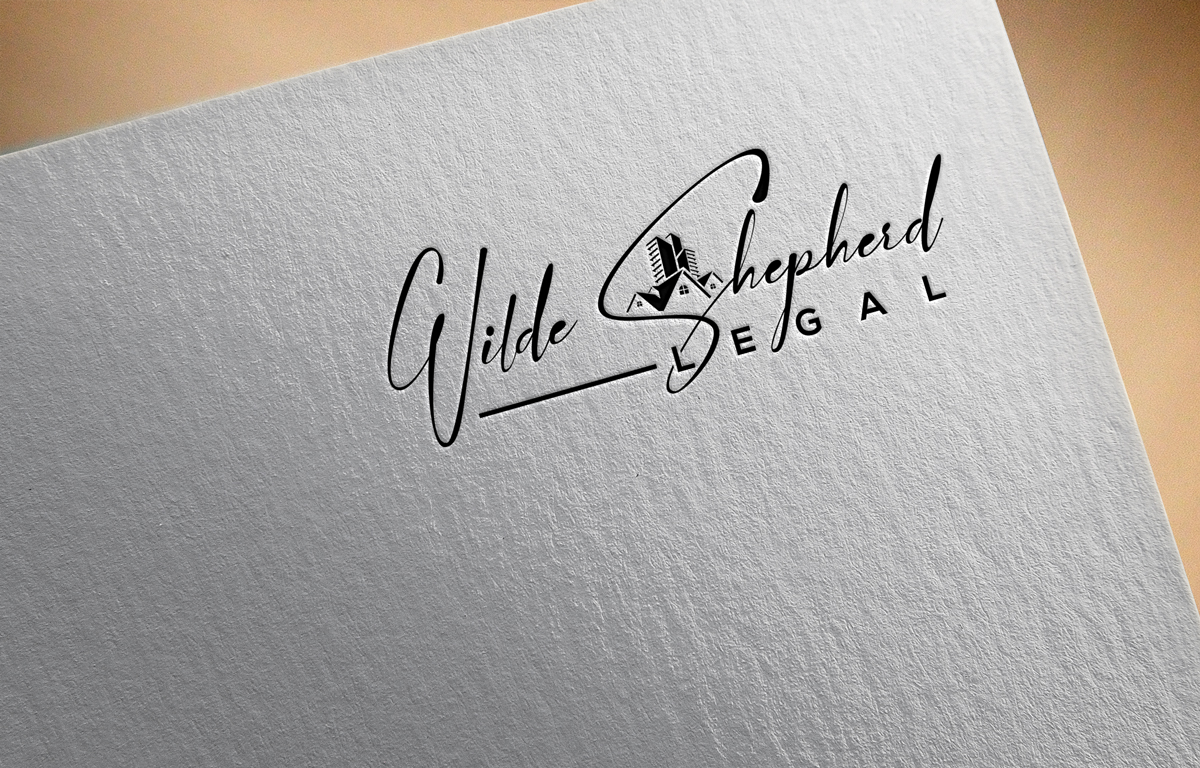 Wilde Shepherd
LEGAL